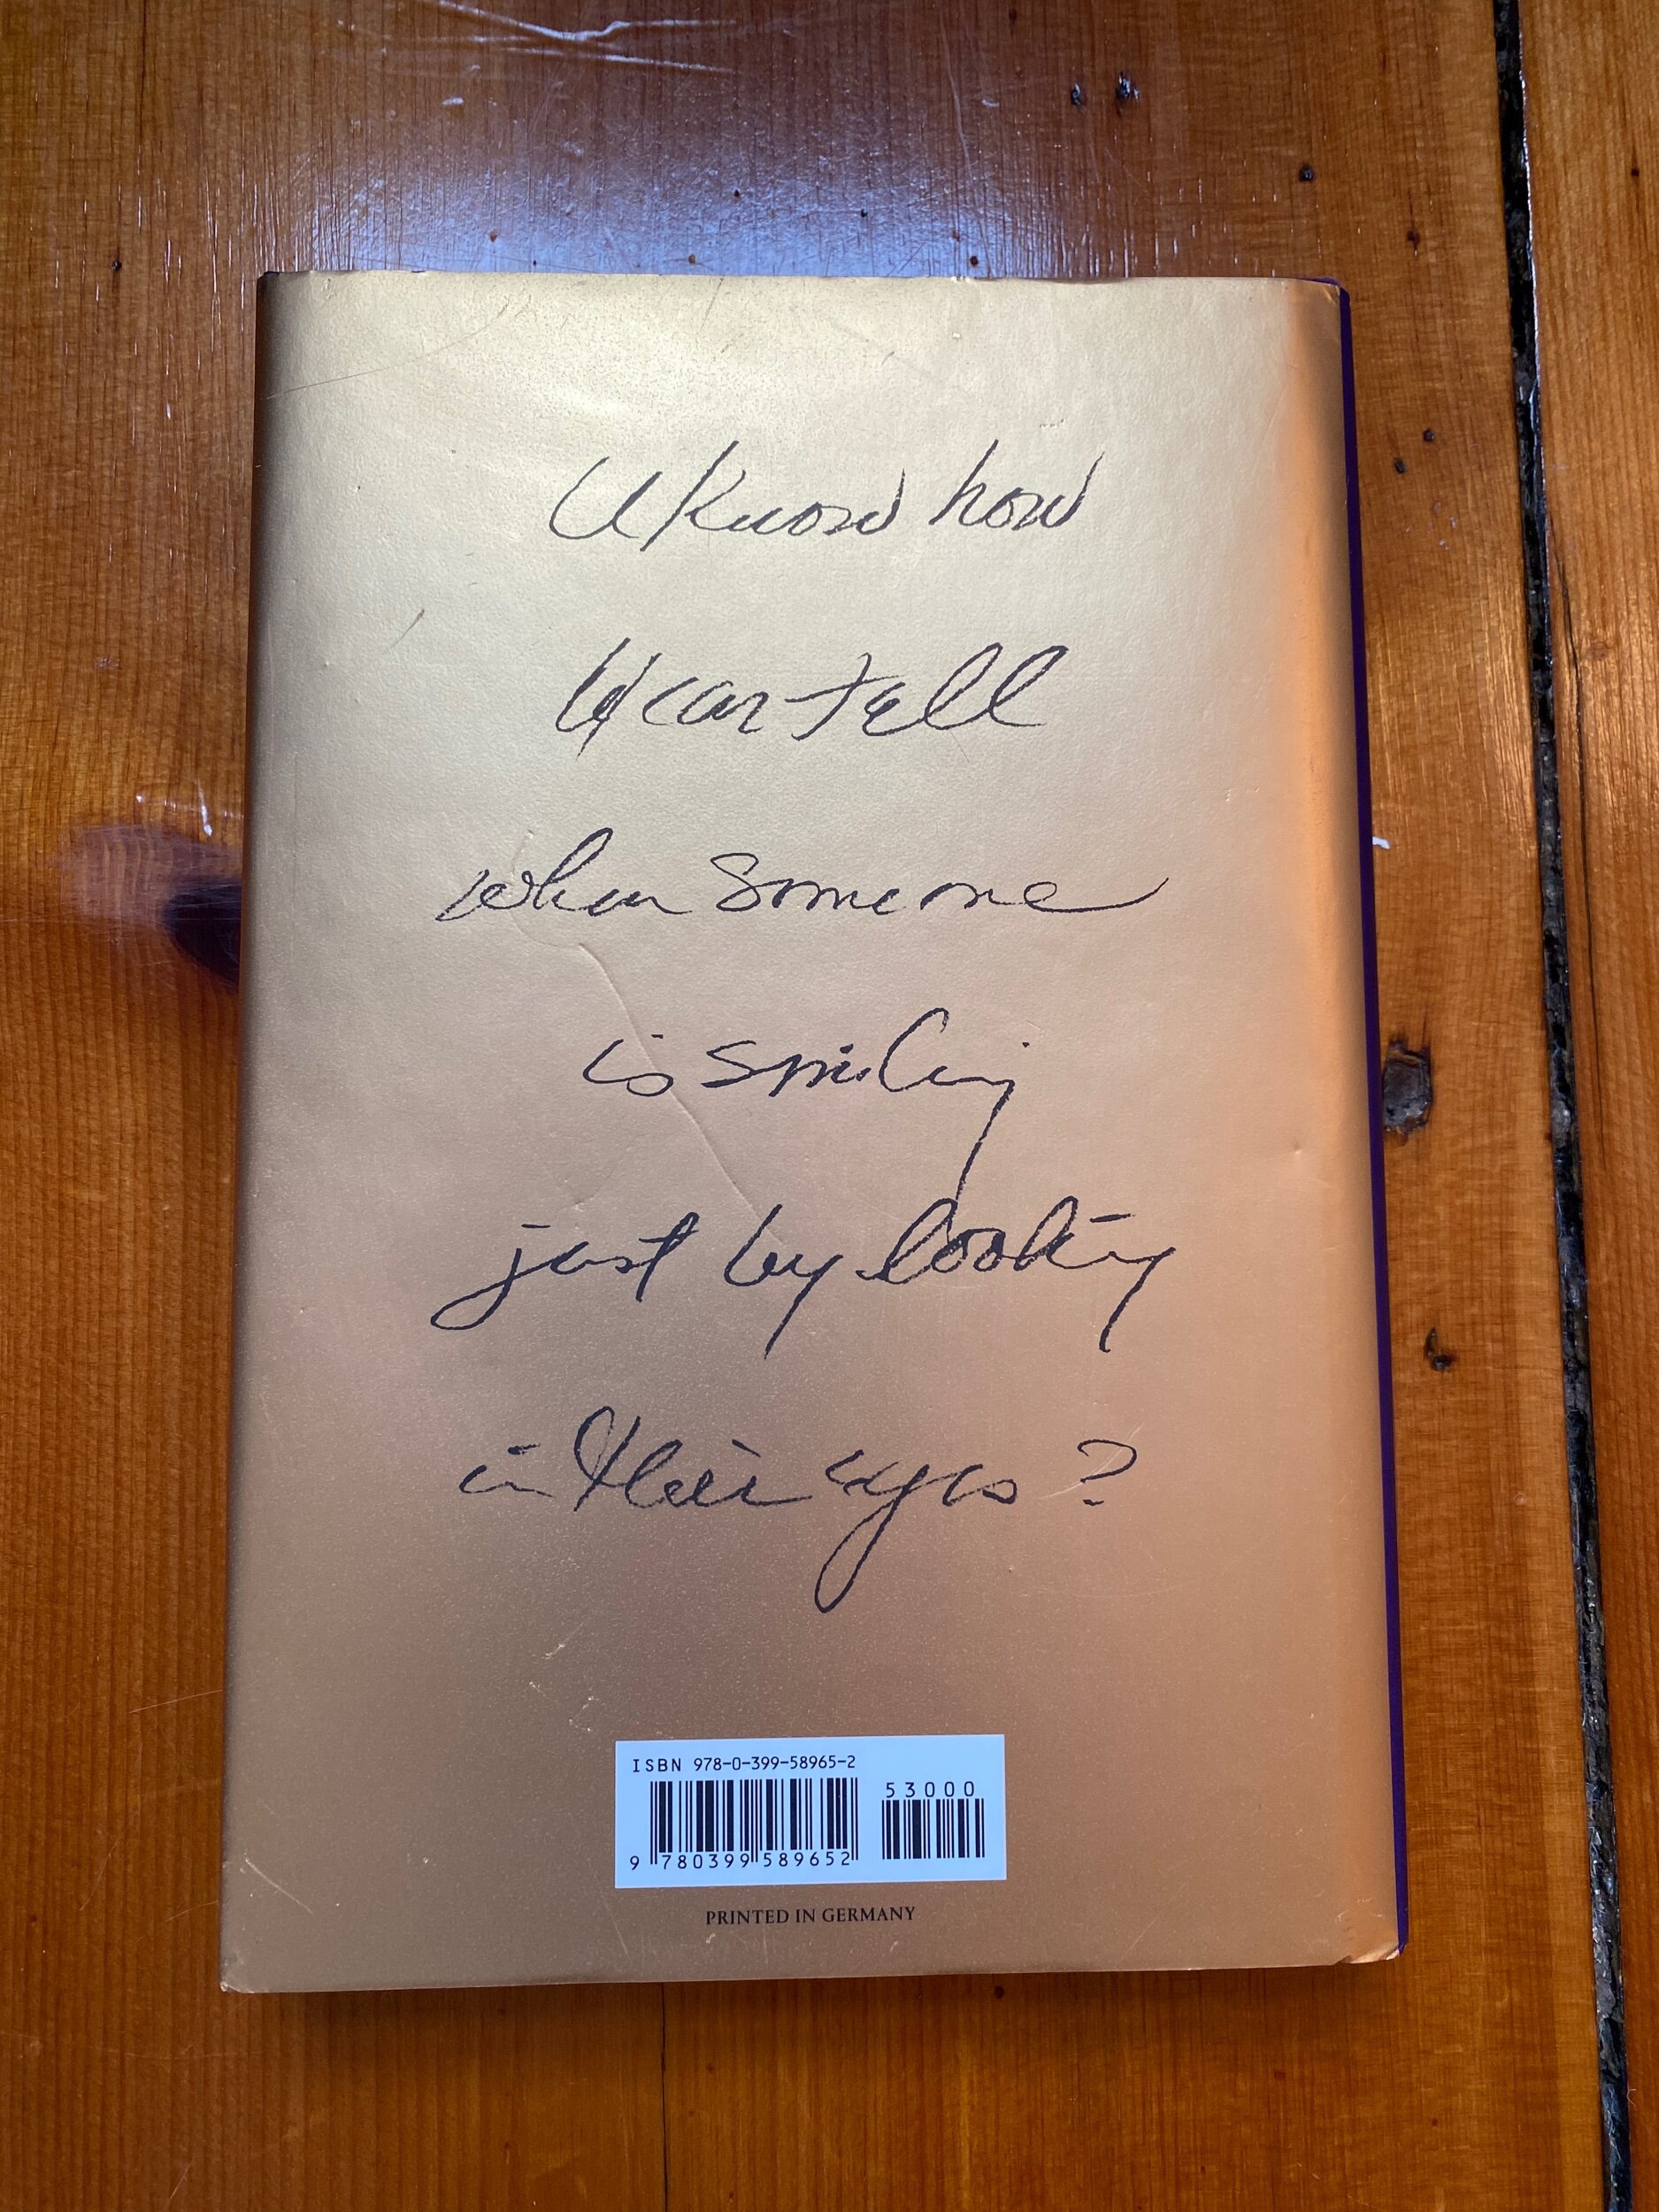 U Know how
U can tell
when someone
is smiling
just by looking
in their eyes?
ISBN 978-0-399-58965-2
53000
9 780399 589652
PRINTED IN GERMANY